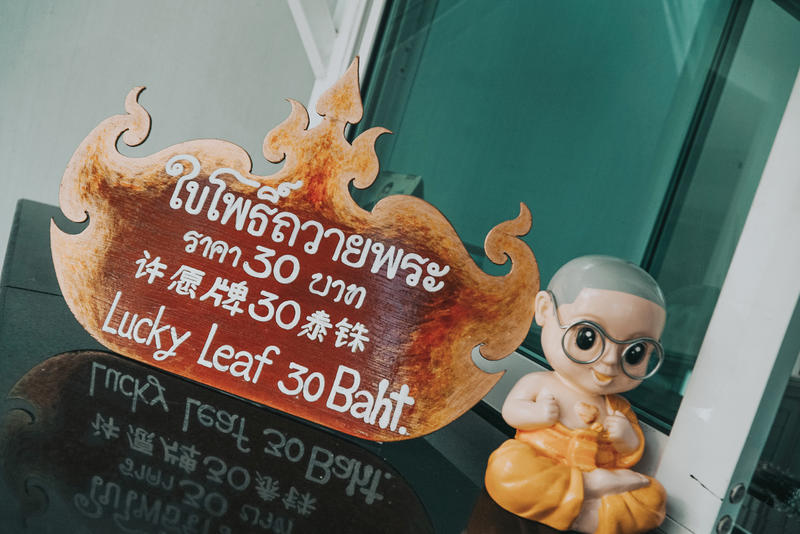 ใบโพธิ์ถวายพระ
ราคา 30 บาท
许愿牌30泰铢
Lucky Leaf 30 Baht.